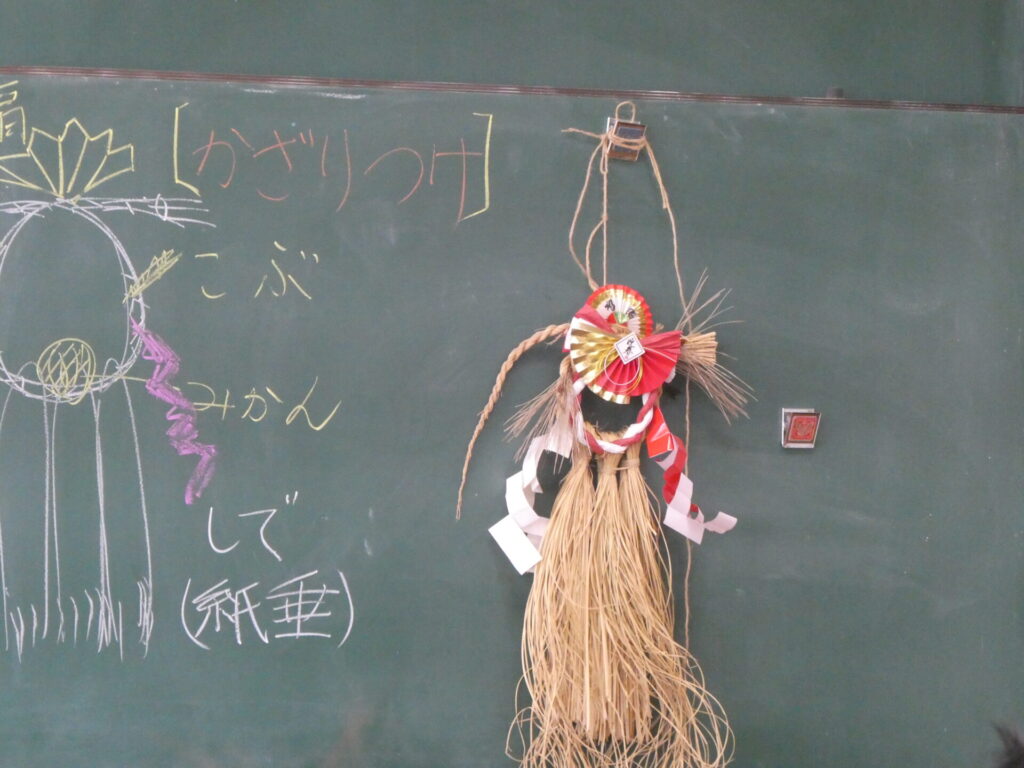 [かざりつけ]
こぶ
みかん
しで
(紙垂)